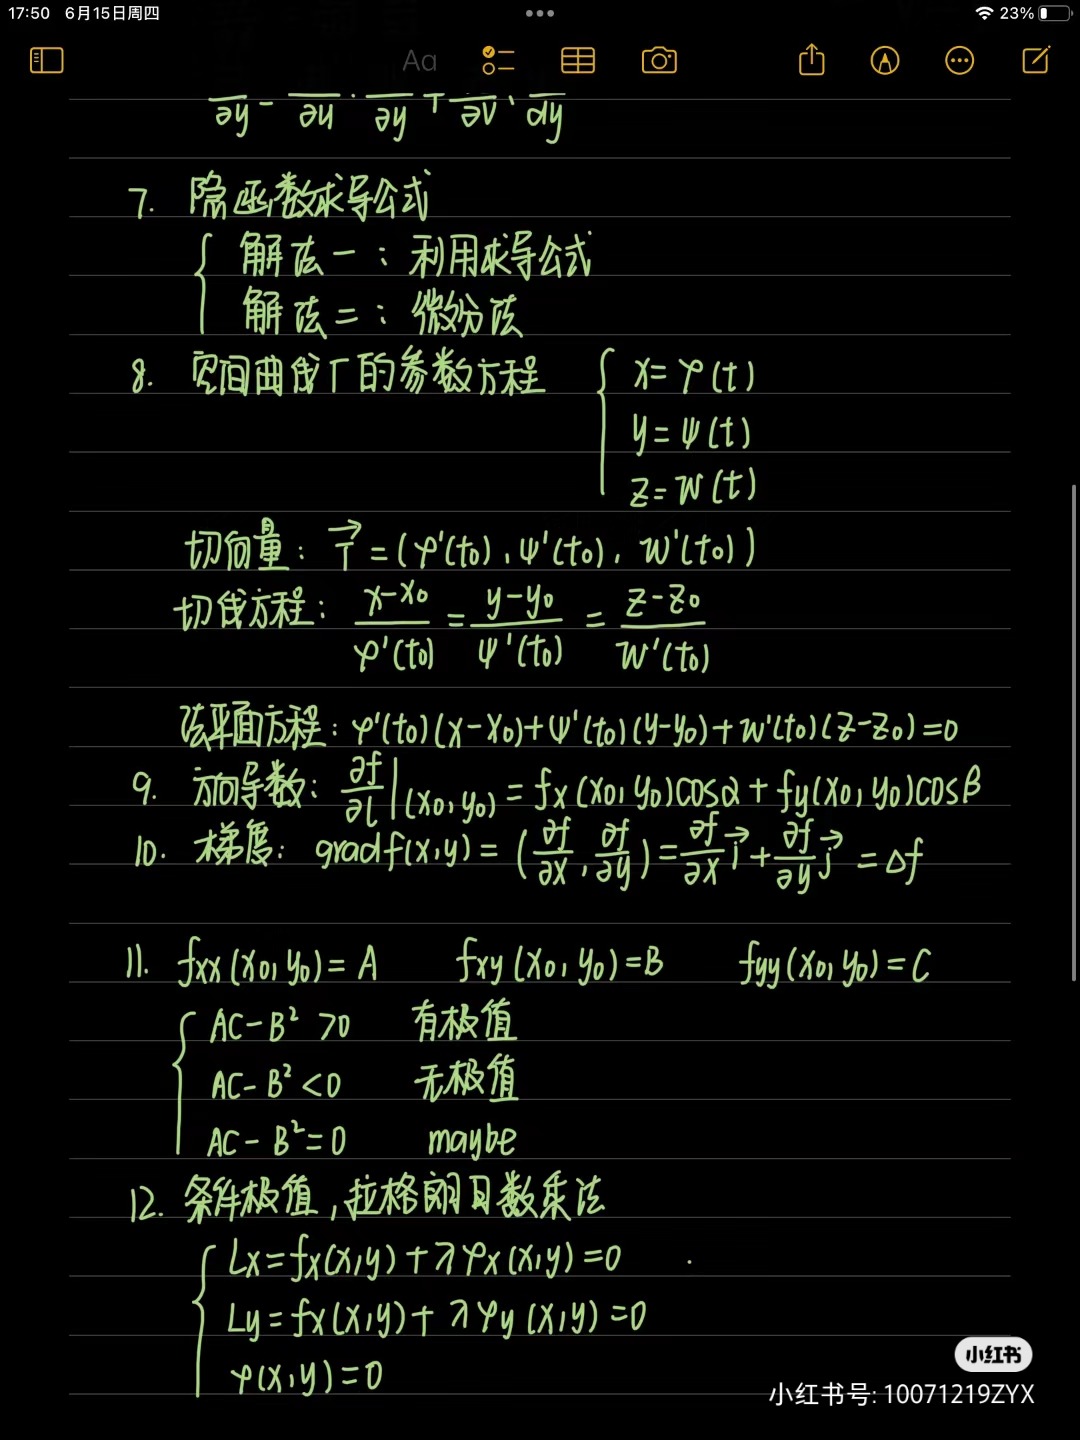 17:50 6月15日周四
23%
Aa
∂y - ∂u · ∂y + ∂v · dy
7. 隐函数求导公式
解法一：利用求导公式
解法二：微分法
8. 空间曲线Γ的参数方程 { x=φ(t)
y=ψ(t)
z=w(t)
切向量：T⃗=(φ'(t₀), ψ'(t₀), w'(t₀))
切线方程：(x-x₀)/φ'(t₀) = (y-y₀)/ψ'(t₀) = (z-z₀)/w'(t₀)
法平面方程：φ'(t₀)(x-x₀)+ψ'(t₀)(y-y₀)+w'(t₀)(z-z₀)=0
9. 方向导数：∂f/∂l|(x₀,y₀) = fx(x₀,y₀)cosα + fy(x₀,y₀)cosβ
10. 梯度：gradf(x,y) = (∂f/∂x, ∂f/∂y) = ∂f/∂x i⃗ + ∂f/∂y j⃗ = Δf
11. fxx(x₀,y₀)=A fxy(x₀,y₀)=B fyy(x₀,y₀)=C
AC-B²>0 有极值
AC-B²<0 无极值
AC-B²=0 maybe
12. 条件极值，拉格朗日数乘法
Lx=fx(x,y)+λφx(x,y)=0
Ly=fx(x,y)+λφy(x,y)=0
φ(x,y)=0
小红书
小红书号: 10071219ZYX